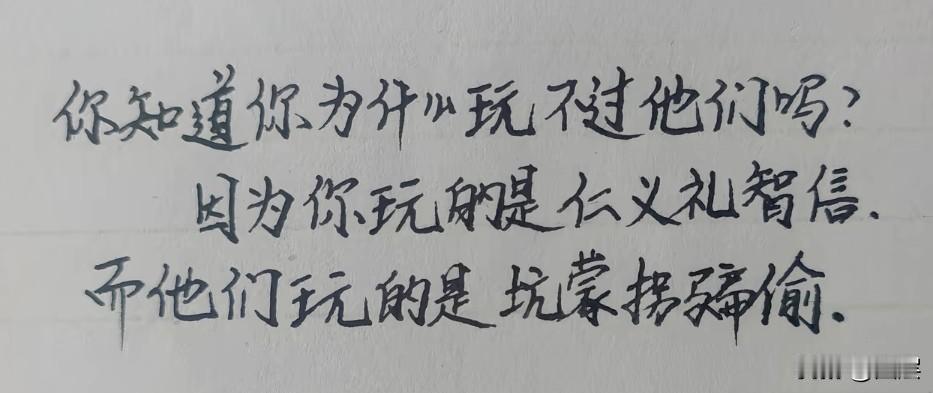 你知道你为什么玩不过他们吗？
因为你玩的是仁义礼智信.
而他们玩的是坑蒙拐骗偷.